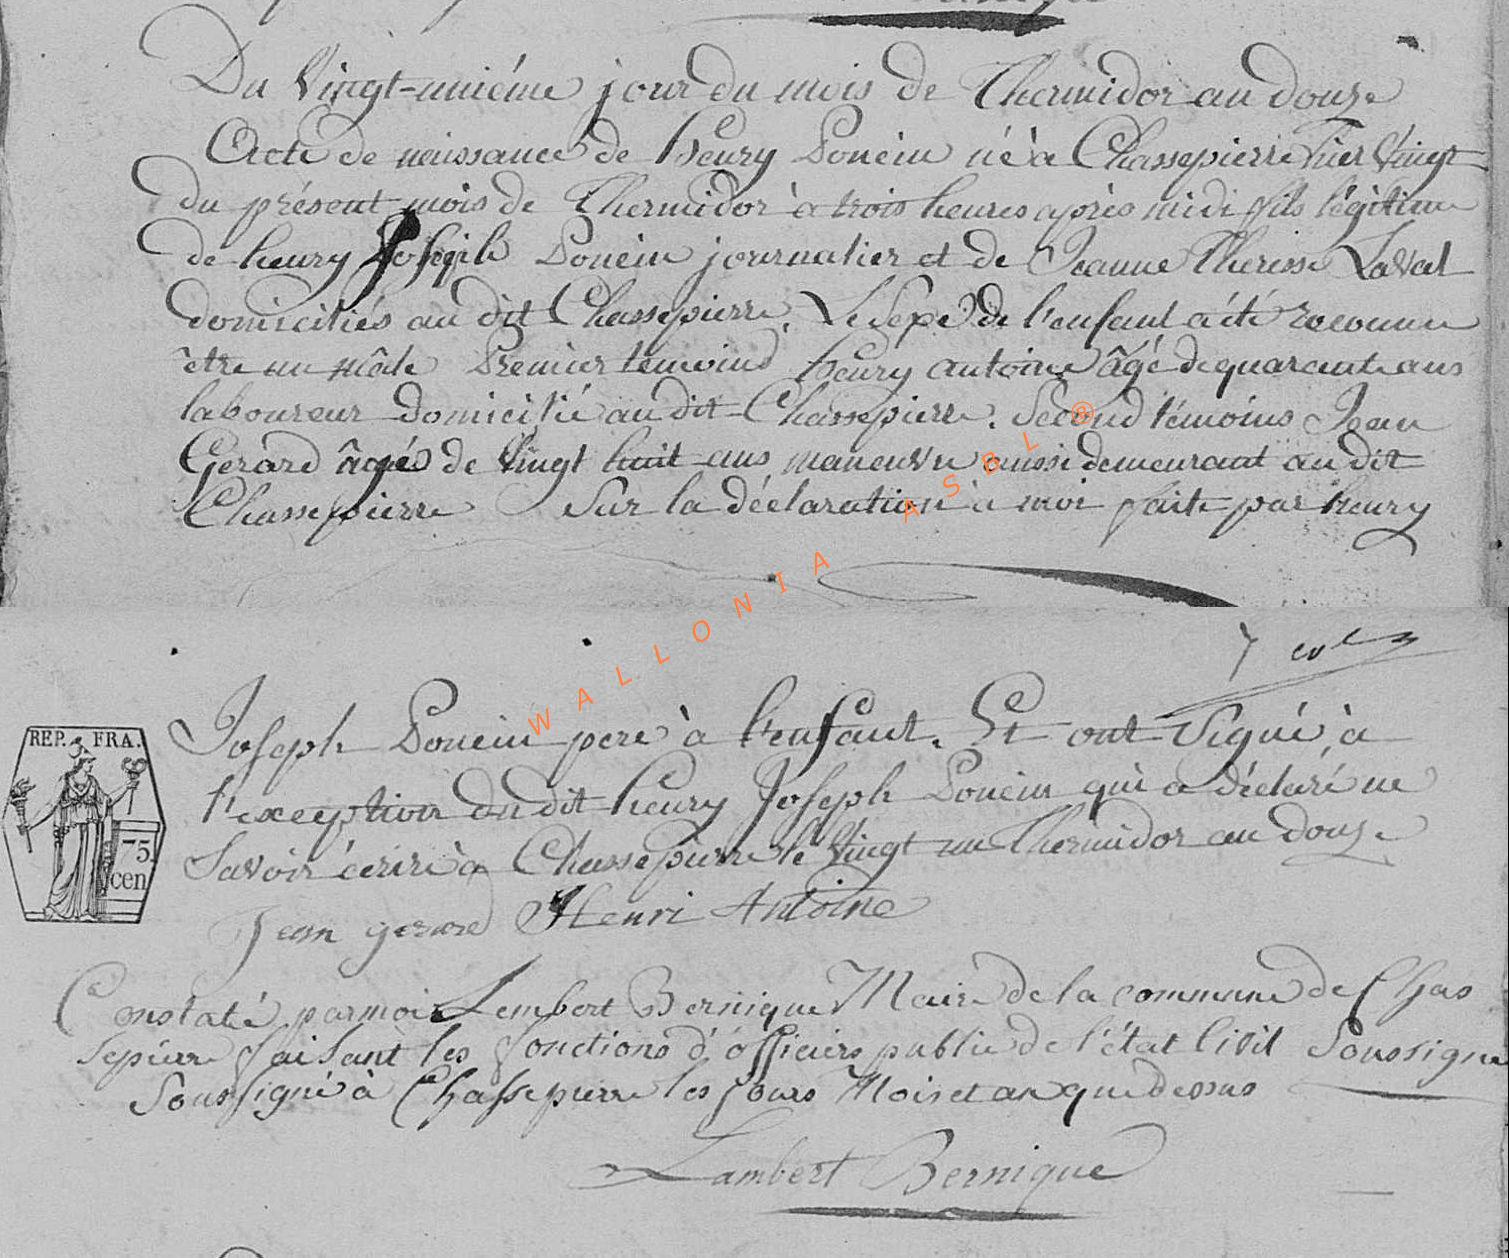 Du Vingt-uniéme jour du mois de Thermidor an douze
Acte de naissance de henry Poncin né à Chassepierre hier Vingt
du présent mois de Thermidor à trois heures après midi fils légitime
de henry Joseph Poncin journalier et de Jeanne Theresse Laval
domiciliés au dit Chassepierre. Le Sexe de l'enfant a été reconnu
être un mâle Premier temoins henry antoine âgé de quarante ans
laboureur domicilié au dit Chassepierre. Second témoins Jean
Gerard âgés de Vingt huit ans maneuvre aussi demeurant au dit
Chassepierre Sur la déclaration à moi faite par henry
WALLONIA ASBL ®
REP. FRA.
75
cen
Joseph Poncin pere à l'enfant. Et ont Signé, à
l'exception du dit henry Joseph Poncin qui a déclaré ne
Savoir écrire à Chassepierre le Vingt un Thermidor an douze
Jean gerard Henri Antoine
Constaté par moi Lembert Bernique Maire de la commune de Chas
sepierre faisant les fonctions d'officiers public de l'état Civil Soussigne
Soussigné à Chassepierre les jours Mois et an que dessus
Lambert Bernique